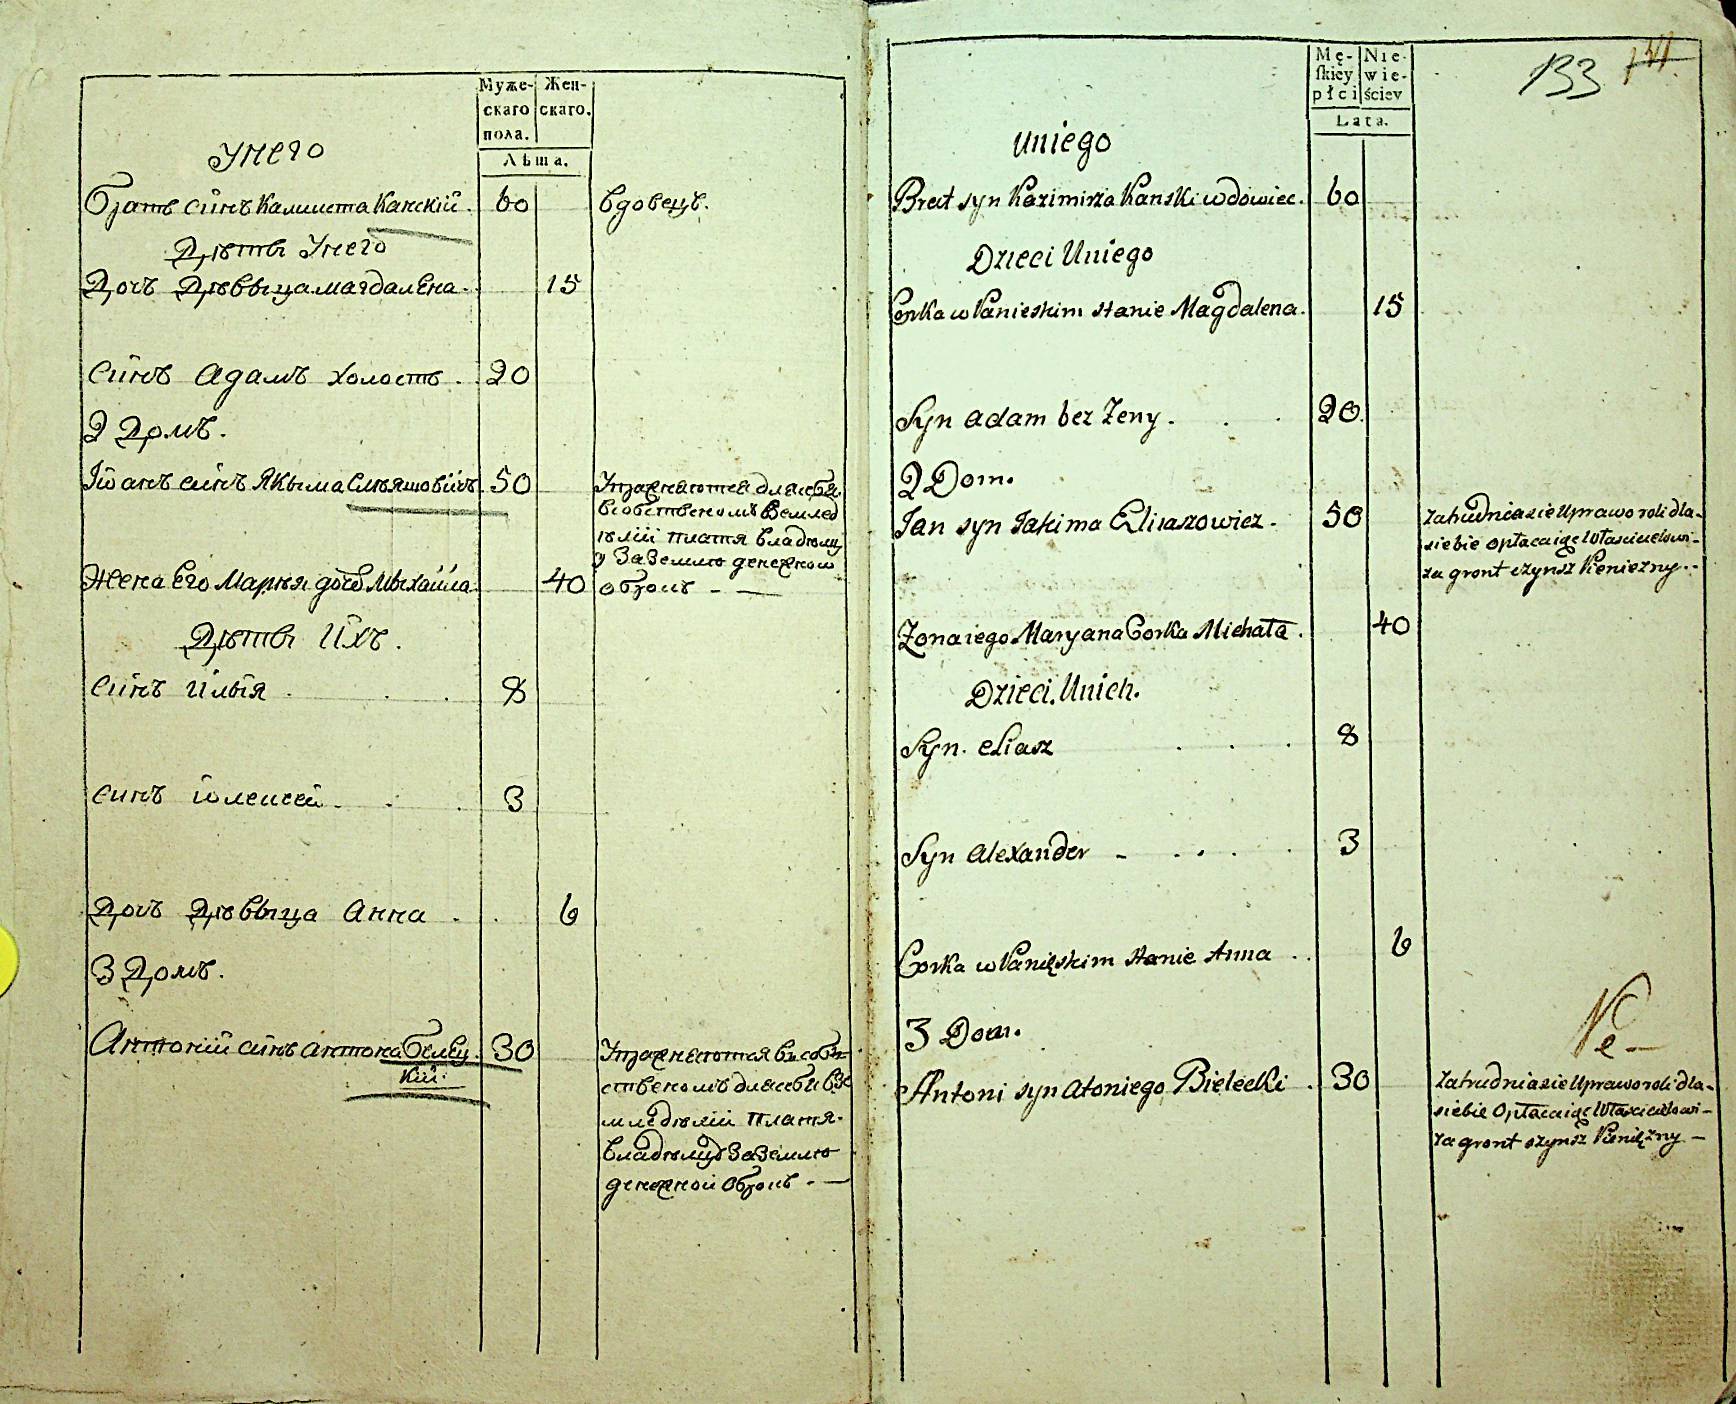 Муже-
скаго
пола.
Жен-
скаго.
Лѣта.
Унего
братъ синъ Калиста Канскій. 60 вдовецъ.
Дѣтьı Унего
Дочъ Дѣввица магдалена. 15
синъ Адамъ холостъ. 20
2 Домъ.
Іванъ синъ Якыма Слѣяшовичъ. 50
Упражняются для себя
землед
ѣліи платя владѣлц
у за землю денежнои
оброкъ - —
Жена Его Марыя дочъ Мыхайла. 40
Дѣтьı Ихъ.
синъ Илыя . . . 8
синъ 3
Дочъ Дѣввица Анна . . 6
3 Домъ.
Антоній синъ антона белец. 30
кій.
Упражняются в собя-
ственомъ для себя зе
мледѣліи платя-
владѣлцу за землю
денежнои оброкъ. —
Mę-
skiey
płci
Nie-
wie-
ściey
Lata.
133
uniego
Brat syn Kazimirza Kanski wdowiec. 60
Dzieci Uniego
Corka w Panieskim stanie Magdalena. 15
Syn adam bez Zeny . . . 20.
2 Dom.
Jan syn Jakima Eliaszowicz. 50
Zatrudnia sie Uprawo roli dla-
siebie opłacaiąc Włascicielowi-
za gront czynsz Pieniezny. -
Zona iego Maryana Corka Michała. 40
Dzieci. Unich.
Syn. eliasz . . . 8
Syn alexander - . . . . 3
Corka w Panięskim stanie Anna . . 6
3 Dom.
Ne —
Antoni syn atoniego Bielecki . 30
Zatrudnia sie Uprawo roli dla-
siebie opłacaiąc Włascicielowi-
za gront czynsz Pieniężny —